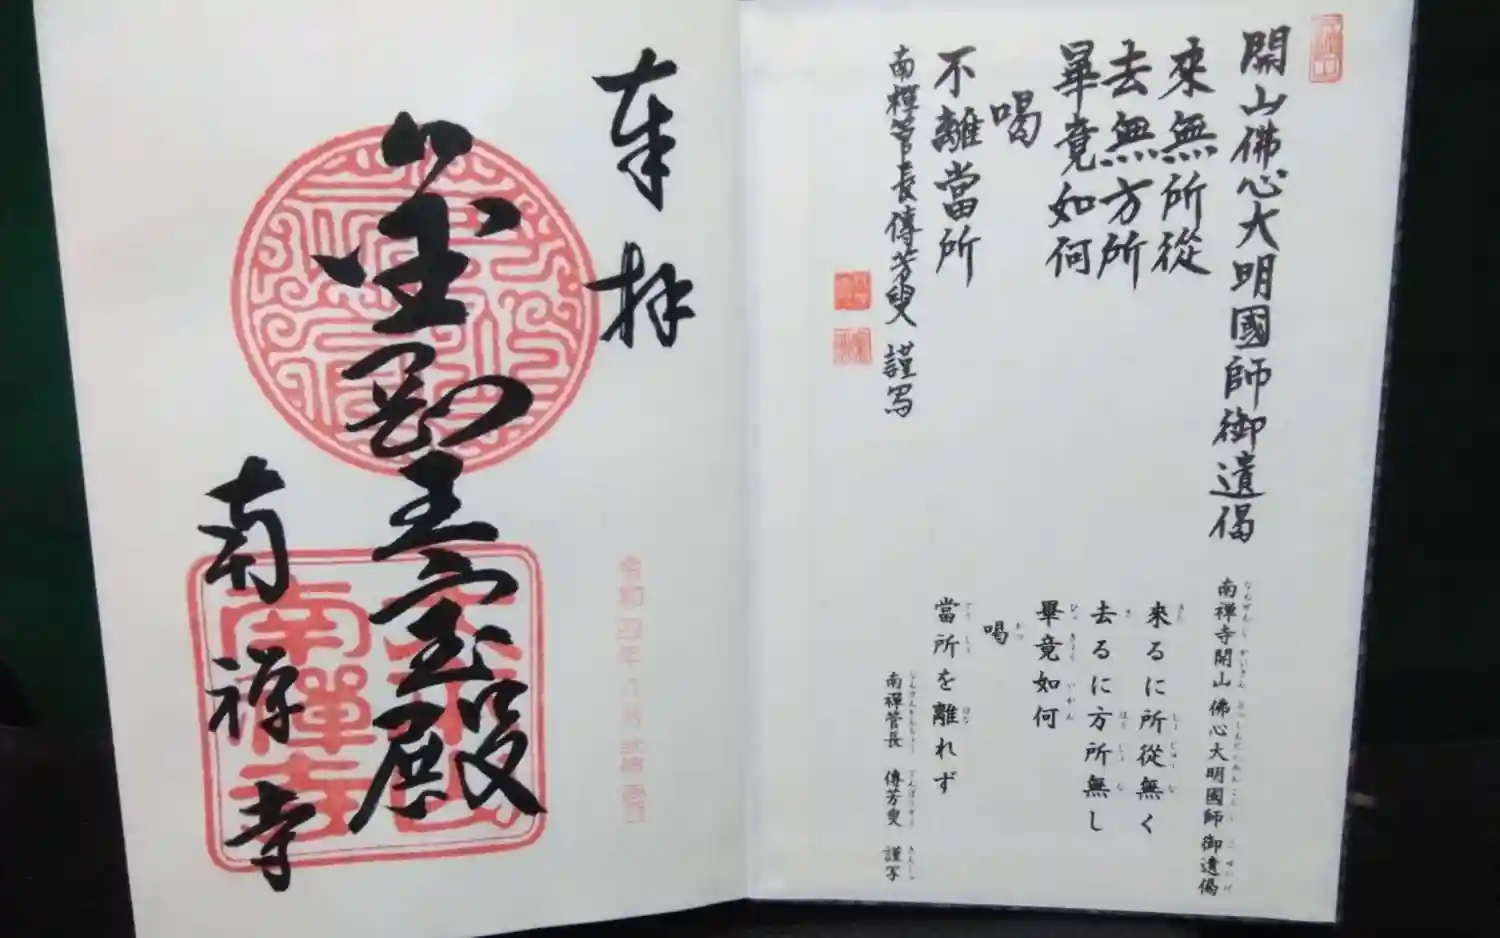 開山佛心大明國師御遺偈
來無所從
去無方所
畢竟如何
喝
不離當所
南禪管長傳芳叟 謹写
南禪寺開山 佛心大明國師 御遺偈
來るに所從無く
去るに方所無し
畢竟如何
喝
當所を離れず
南禪管長 傳芳叟 謹写
奉拝
令和四年八月
金剛王宝殿
南禅寺